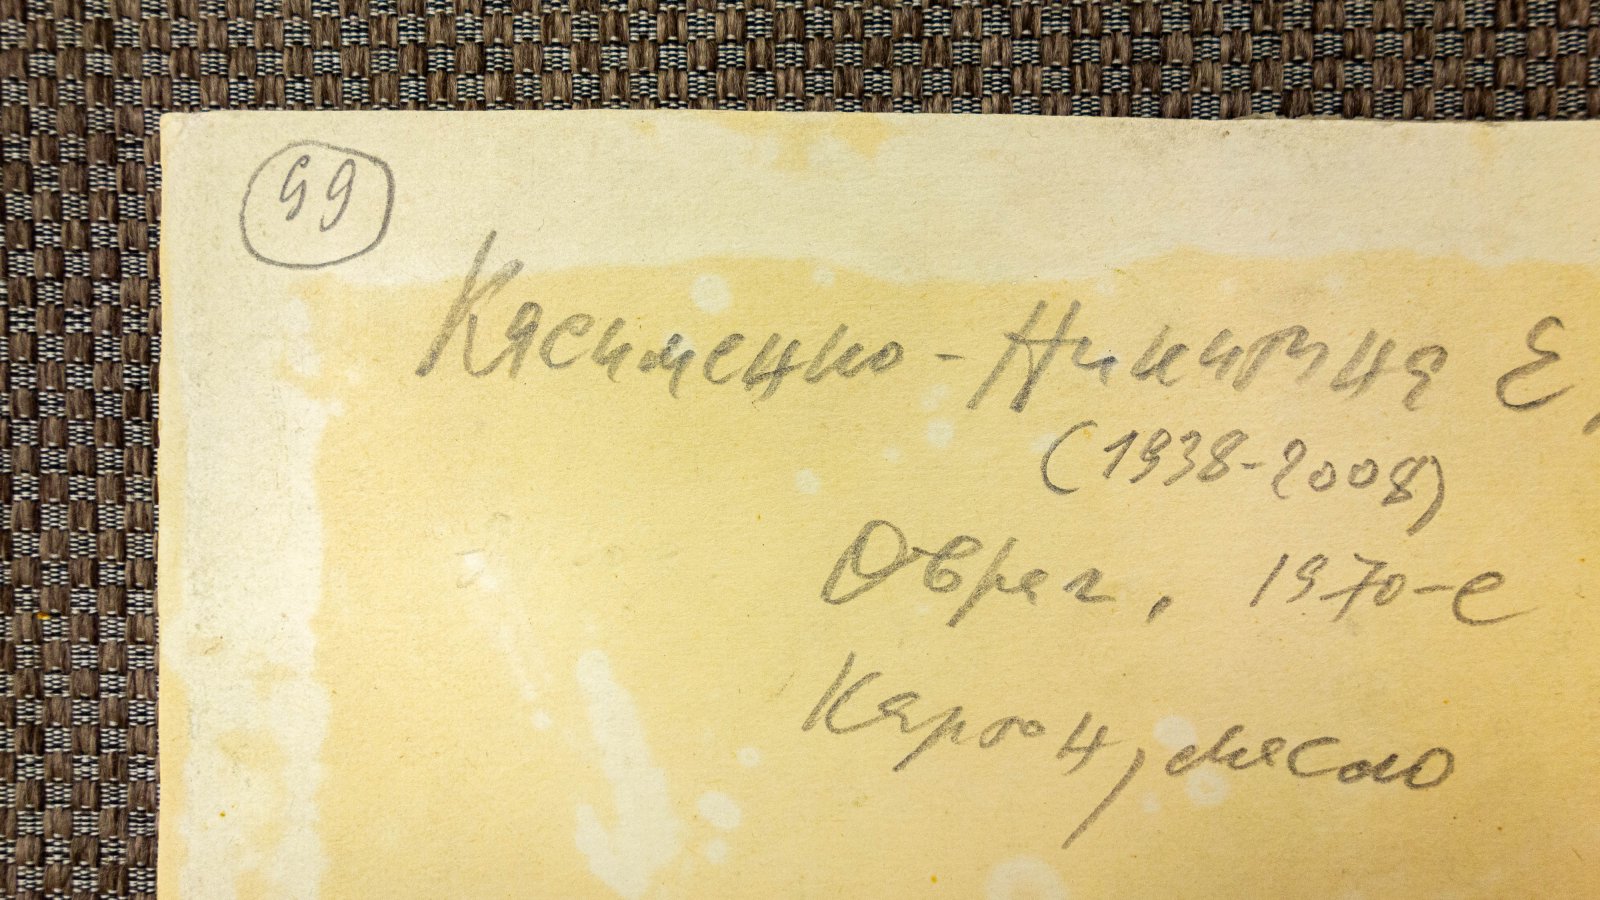 59
Касименко-Никитина Е.
(1938-2008)
Овраг, 1970-е
Картон, масло